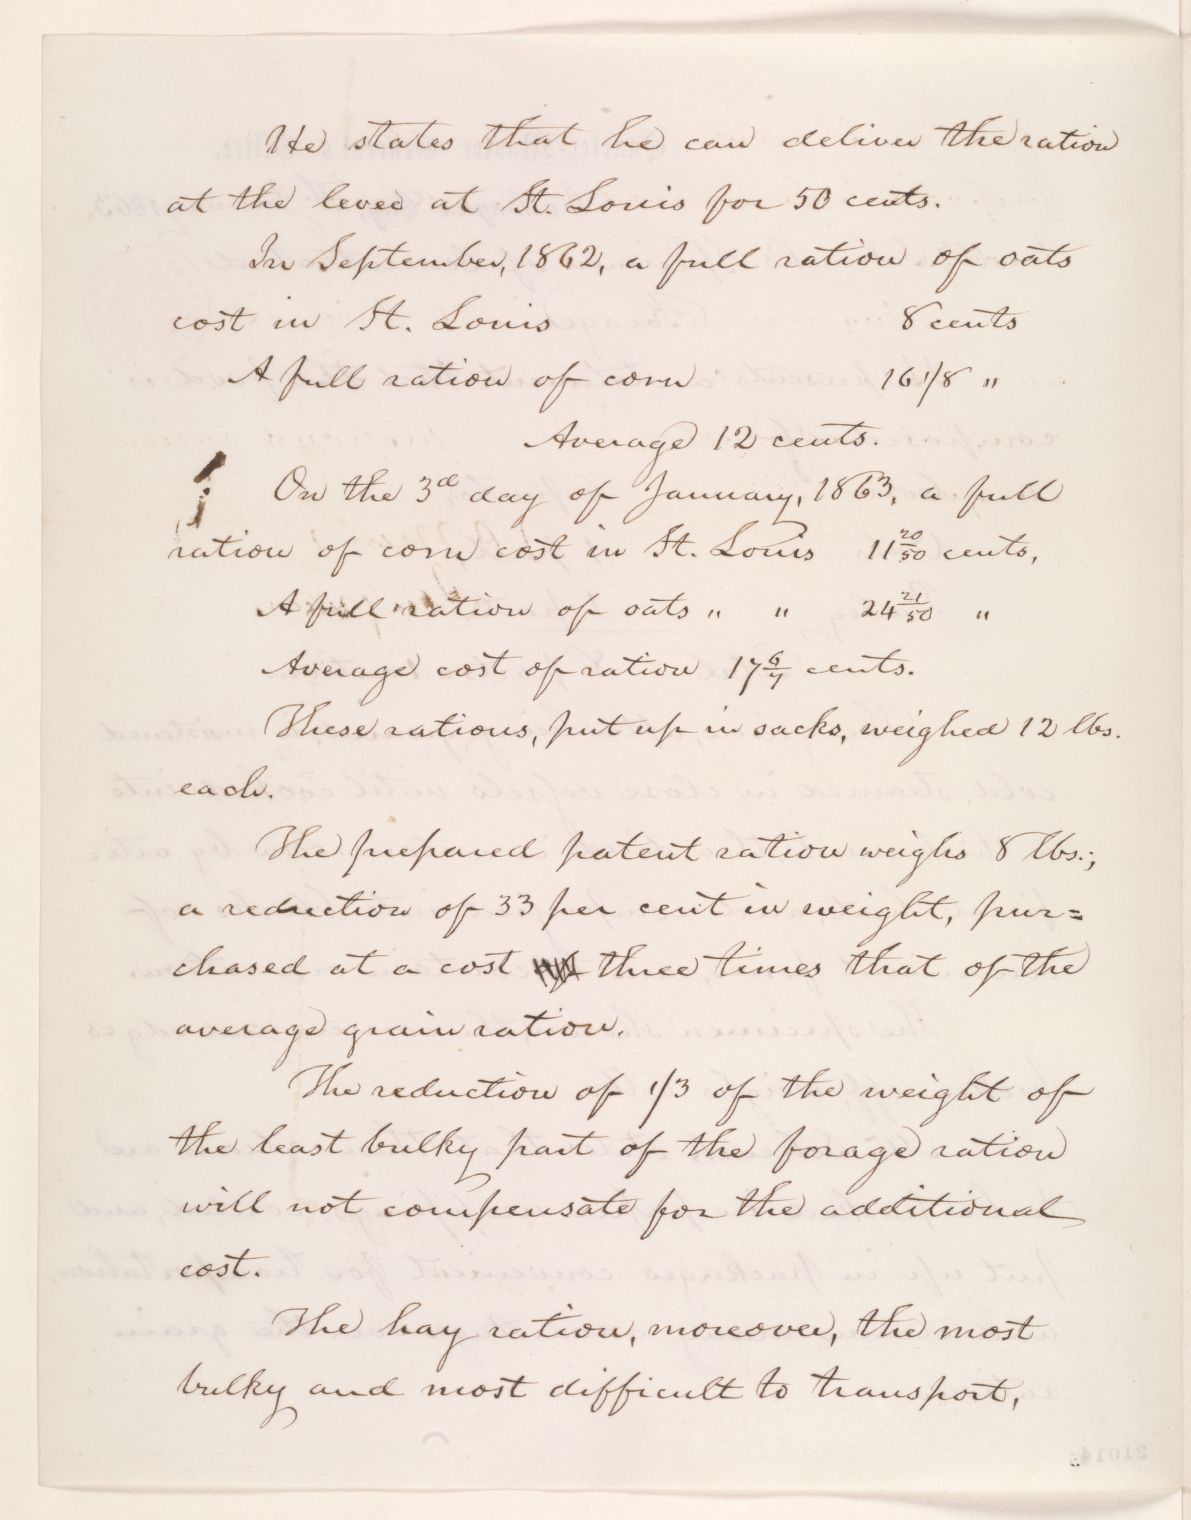 He states that he can deliver the ration
at the levee at St. Louis for 50 cents.
In September, 1862, a full ration of oats
cost in St. Louis 8 cents
A full ration of corn 16 1/8 "
Average 12 cents.
On the 3d day of January, 1863, a full
ration of corn cost in St. Louis 11 20/50 cents,
A full ration of oats " " 24 21/50 "
Average cost of ration 17 6/7 cents.
These rations, put up in sacks, weighed 12 lbs.
each.
The prepared patent ration weighs 8 lbs.;
a reduction of 33 per cent in weight, pur=
chased at a cost three times that of the
average grain ration.
The reduction of 1/3 of the weight of
the least bulky part of the forage ration
will not compensate for the additional
cost.
The hay ration, moreover, the most
bulky and most difficult to transport,